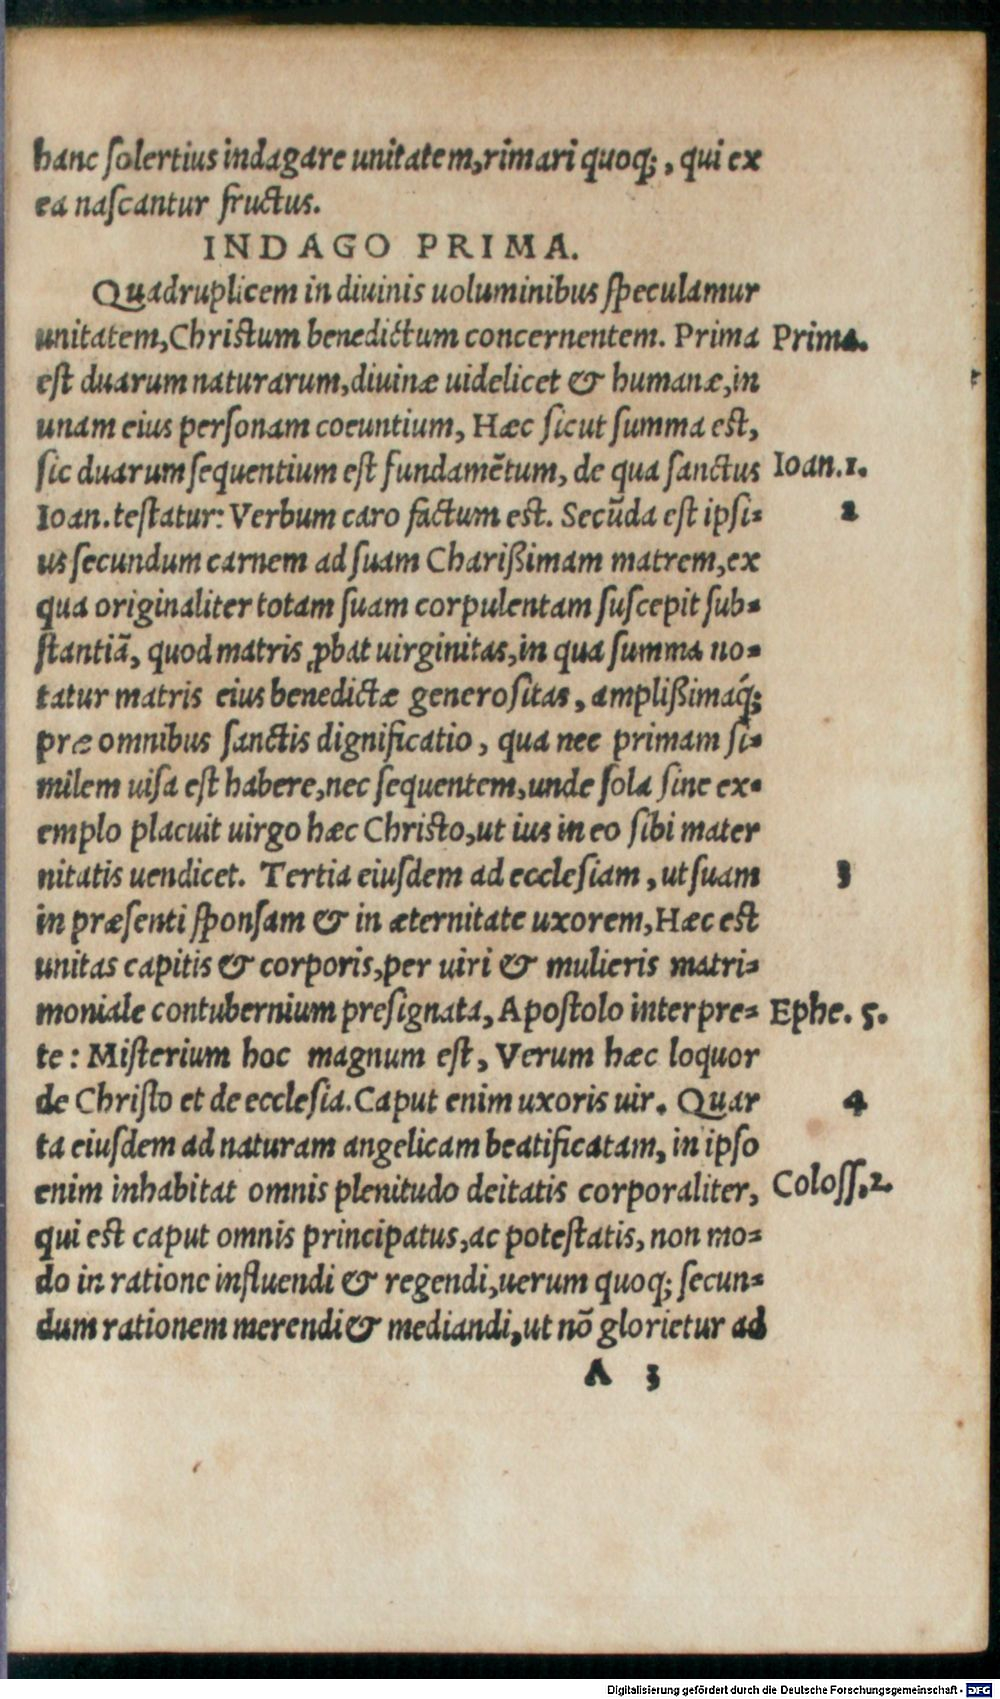 hanc solertius indagare unitatem, rimari quoq;, qui ex
ea nascantur fructus.
INDAGO PRIMA.
Quadruplicem in diuinis uoluminibus speculamur
unitatem, Christum benedictum concernentem. Prima Prima.
est duarum naturarum, diuinæ uidelicet & humanæ, in
unam eius personam coeuntium, Hæc sicut summa est,
sic duarum sequentium est fundamẽtum, de qua sanctus Ioan.1.
Ioan. testatur: Verbum caro factum est. Secũda est ipsi= 2
us secundum carnem ad suam Charißimam matrem, ex
qua originaliter totam suam corpulentam suscepit sub=
stantiã, quod matris ꝓbat uirginitas, in qua summa no=
tatur matris eius benedictæ generositas, amplißimaq́;
præ omnibus sanctis dignificatio, qua nec primam si=
milem uisa est habere, nec sequentem, unde sola sine ex=
emplo placuit uirgo hæc Christo, ut ius in eo sibi mater
nitatis uendicet. Tertia eiusdem ad ecclesiam, ut suam 3
in præsenti sponsam & in æternitate uxorem, Hæc est
unitas capitis & corporis, per uiri & mulieris matri=
moniale contubernium presignata, Apostolo interpre= Ephe. 5.
te: Misterium hoc magnum est, Verum hæc loquor
de Christo et de ecclesia. Caput enim uxoris uir. Quar 4
ta eiusdem ad naturam angelicam beatificatam, in ipso
enim inhabitat omnis plenitudo deitatis corporaliter, Coloss.2.
qui est caput omnis principatus, ac potestatis, non mo=
do in ratione influendi & regendi, uerum quoq; secun=
dum rationem merendi & mediandi, ut nõ glorietur ad
A 3
Digitalisierung gefördert durch die Deutsche Forschungsgemeinschaft - DFG